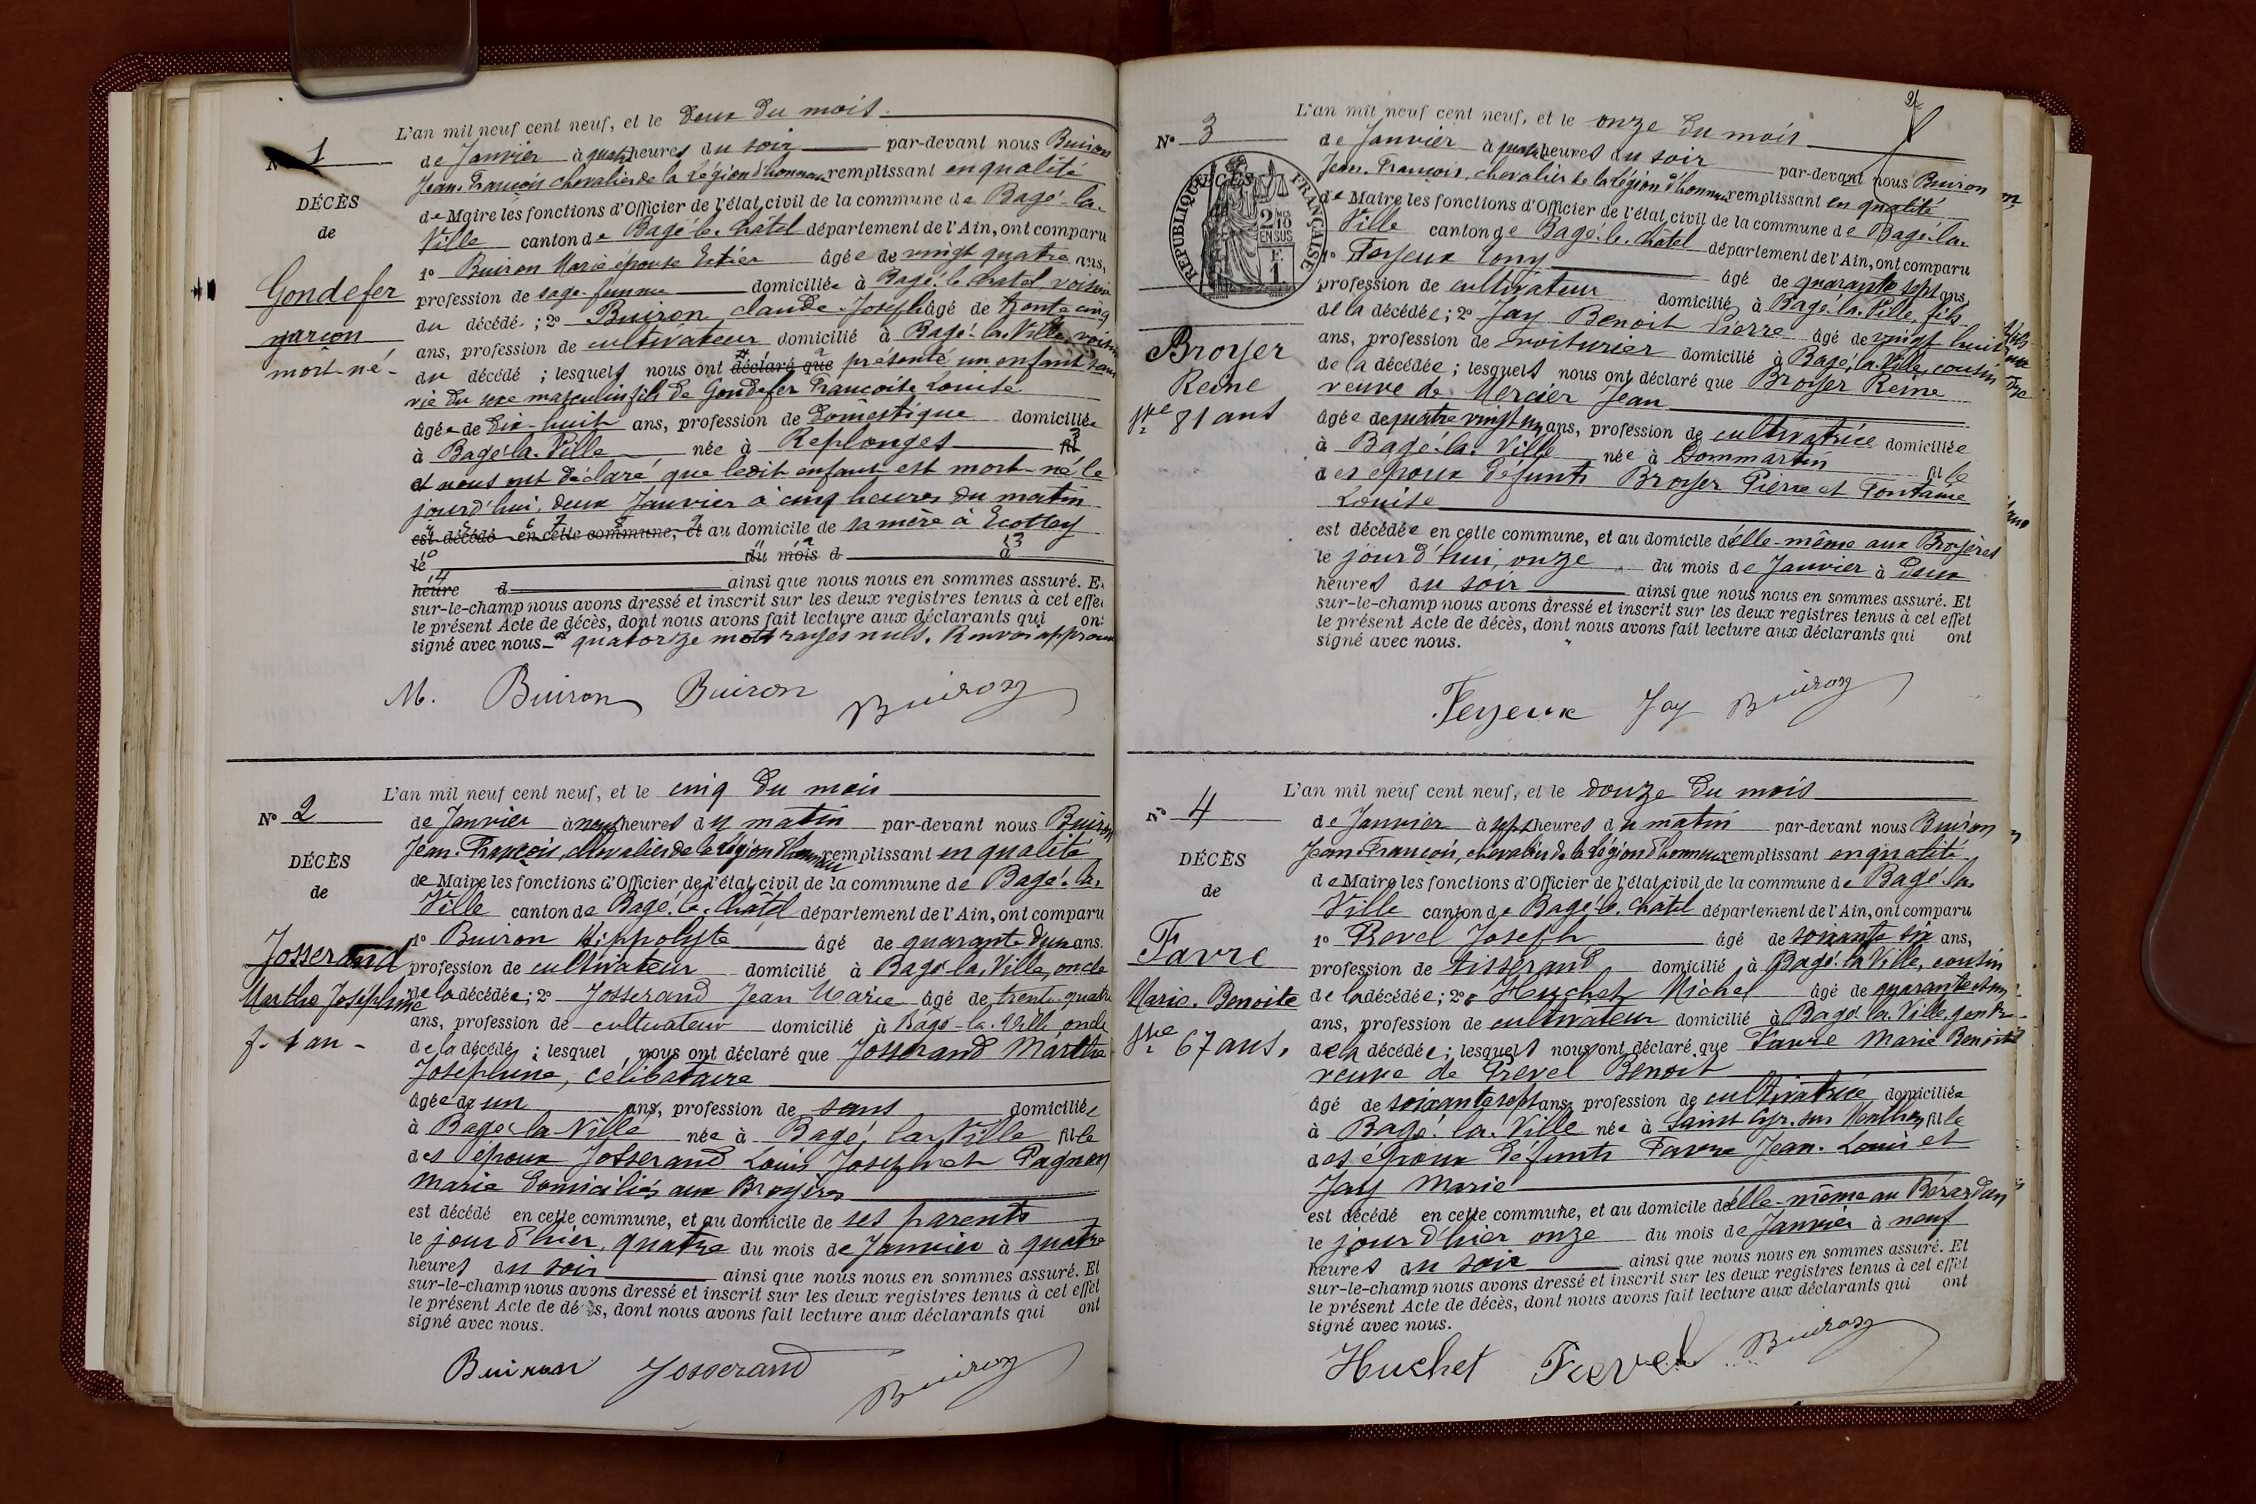 L'an mil neuf cent neuf, et le deux du mois
N° 1
de Janvier à quatre heures du soir par-devant nous Buiron
Jean-François chevalier de la Légion d'honneur remplissant en qualité
DÉCÈS
de Maire les fonctions d'Officier de l'état civil de la commune de Bagé-la-
de
Ville canton de Bagé-le-Châtel département de l'Ain, ont comparu
1° Buiron Marie épouse âgée de vingt quatre ans,
Gondefer
profession de sage-femme domiciliée à Bagé-le-Châtel voisine
du décédé ; 2° Buiron Claude-Joseph âgé de trente cinq
garçon
ans, profession de cultivateur domicilié à Bagé-la-Ville, voisin
mort-né
du décédé ; lesquels nous ont déclaré que présenté un enfant sans
vie du sexe masculin fils de Gondefer Françoise Louise
âgée de dix-huit ans, profession de domestique domiciliée
à Bagé-la-Ville née à Replonges fil
et nous ont déclaré que ledit enfant est mort-né le
jourd'hui, deux Janvier à cinq heures du matin
est décédé en cette commune, et au domicile de sa mère à Ecottey
le du mois d à
heure d ainsi que nous nous en sommes assuré. Et
sur-le-champ nous avons dressé et inscrit sur les deux registres tenus à cet effet
le présent Acte de décès, dont nous avons fait lecture aux déclarants qui ont
signé avec nous. quatorze mots rayés nuls. Renvoi approuvé
M. Buiron Buiron Buiron
L'an mil neuf cent neuf, et le cinq du mois
N° 2
de Janvier à neuf heures du matin par-devant nous Buiron
Jean-François, chevalier de la Légion d'honneur remplissant en qualité
DÉCÈS
de Maire les fonctions d'Officier de l'état civil de la commune de Bagé-la-
de
Ville canton de Bagé-le-Châtel département de l'Ain, ont comparu
1° Buiron Hippolyte âgé de quarante d'un ans.
Josserand
profession de cultivateur domicilié à Bagé-la-Ville, oncle
Marthe Joséphine
de la décédée; 2° Josserand Jean Marie âgé de trente-quatre
ans, profession de cultivateur domicilié à Bagé-la-Ville oncle
f. 1 an -
de la décédé ; lesquel nous ont déclaré que Josserand Marthe
Joséphine, célibataire
âgée de un ans, profession de sans domiciliée
à Bagé-la-Ville née à Bagé-la-Ville fille
des époux Josserand Louis Joseph et Pagneon
Marie domiciliés aux Broyères
est décédé en cette commune, et au domicile de ses parents
le jour d'hier, quatre du mois de Janvier à quatre
heures du soir ainsi que nous nous en sommes assuré. Et
sur-le-champ nous avons dressé et inscrit sur les deux registres tenus à cet effet
le présent Acte de décès, dont nous avons fait lecture aux déclarants qui ont
signé avec nous.
Buiron Josserand Buiron
2
L'an mil neuf cent neuf, et le onze du mois
N° 3
de Janvier à quatre heures du soir par-devant nous Buiron
Jean-François, chevalier de la Légion d'honneur remplissant en qualité
RÉPUBLIQUE FRANÇAISE
2/10 EN SUS
de Maire les fonctions d'Officier de l'état civil de la commune de Bagé-la-
Ville canton de Bagé-le-Châtel département de l'Ain, ont comparu
1° Feyeux Cony âgé de quarante sept ans,
profession de cultivateur domicilié à Bagé-la-Ville, fils
de la décédée; 2° Jay Benoit Pierre âgé de vingt huit
Broyer
ans, profession de voiturier domicilié à Bagé-la-Ville, cousin
Reine
de la décédée; lesquels nous ont déclaré que Broyer Reine
veuve de Mercier Jean
81 ans
âgée de quatre vingt un ans, profession de cultivatrice domiciliée
à Bagé-la-Ville née à Dommartin fille
des époux défunts Broyer Pierre et Fontaine
Louise
est décédée en cette commune, et au domicile d'elle-même aux Broyères
le jourd'hui, onze du mois de Janvier à deux
heures du soir ainsi que nous nous en sommes assuré. Et
sur-le-champ nous avons dressé et inscrit sur les deux registres tenus à cet effet
le présent Acte de décès, dont nous avons fait lecture aux déclarants qui ont
signé avec nous.
Feyeux Jay Buiron
L'an mil neuf cent neuf, et le douze du mois
N° 4
de Janvier à sept heures du matin par-devant nous Buiron
Jean-François, chevalier de la Légion d'honneur remplissant en qualité
DÉCÈS
de Maire les fonctions d'Officier de l'état civil de la commune de Bagé-la-
de
Ville canton de Bagé-le-Châtel département de l'Ain, ont comparu
1° Revel Joseph âgé de soixante six ans,
Favre
profession de tisserand domicilié à Bagé-la-Ville, cousin
Marie-Benoite
de la décédée; 2° Huchet Michel âgé de quarante et un
ans, profession de cultivateur domicilié à Bagé-la-Ville, gendre
67 ans.
de la décédée; lesquels nous ont déclaré que Favre Marie Benoite
veuve de Prevel Benoit
âgé de soixante sept ans, profession de cultivatrice domiciliée
à Bagé-la-Ville née à Saint Cyr-sur-Menthon fille
des époux défunts Favre Jean-Louis et
Jay Marie
est décédé en cette commune, et au domicile d'elle-même au Bérardan
le jour d'hier onze du mois de Janvier à neuf
heures du soir ainsi que nous nous en sommes assuré. Et
sur-le-champ nous avons dressé et inscrit sur les deux registres tenus à cet effet
le présent Acte de décès, dont nous avons fait lecture aux déclarants qui ont
signé avec nous.
Huchet Buiron